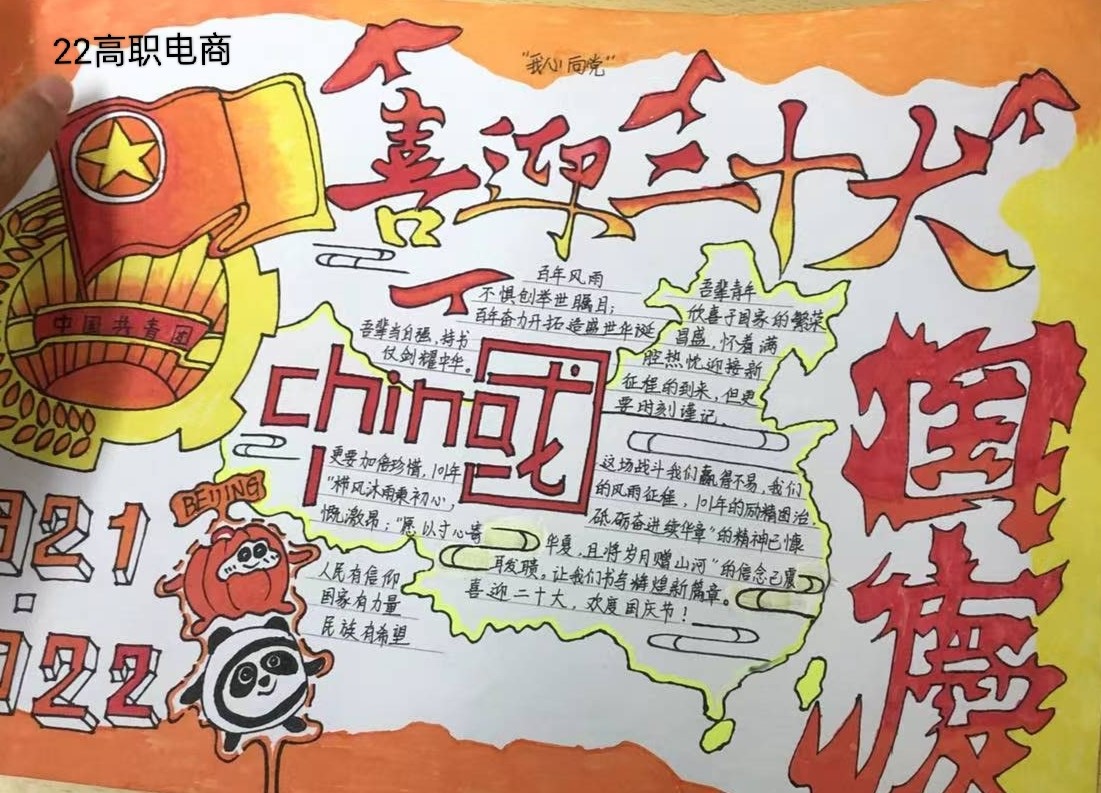 22高职电商
"我心向党"
喜迎二十大
中国共青团
百年风雨
不惧创举世瞩目;
百年奋力开拓造盛世华诞
吾辈当自强,持书
仗剑耀中华。
吾辈青年
欣喜于国家的繁荣
昌盛,怀着满
腔热忱迎接新
征程的到来,但更
要时刻谨记,
china国
国慶
这场战斗我们赢得不易,我们
的风雨征程,101年的励精图治,
砥砺奋进续华章"的精神已慷
更要加倍珍惜,101年
"栉风沐雨秉初心,
慨激昂;"愿以寸心寄
华夏,且将岁月赠山河"的信念已震
耳发聩。让我们书写辉煌新篇章。
喜迎二十大,欢度国庆节!
BEIJING
人民有信仰
国家有力量
民族有希望
921
022